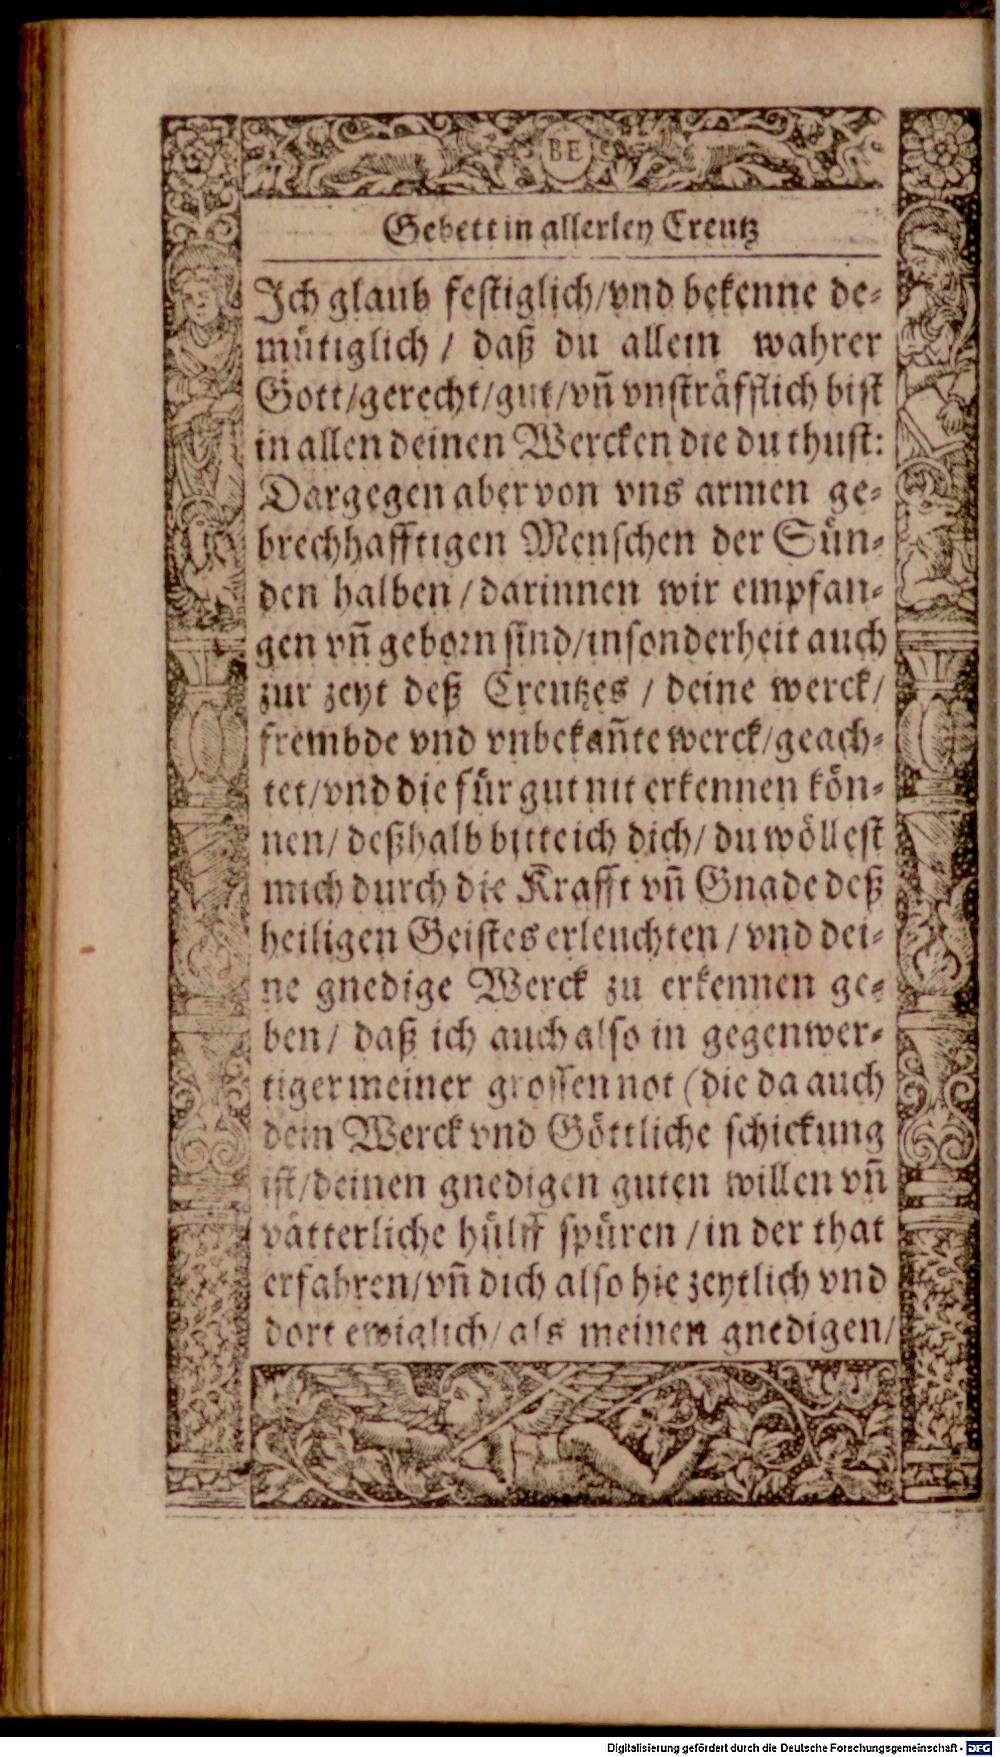 BE
Gebett in allerley Creutz
Ich glaub festiglich/vnd bekenne de-
mütiglich / daß du allein wahrer
Gott/gerecht/gut/vñ vnsträfflich bist
in allen deinen Wercken die du thust:
Dargegen aber von vns armen ge-
brechhafftigen Menschen der Sün-
den halben / darinnen wir empfan-
gen vñ geborn sind/insonderheit auch
zur zeyt deß Creutzes / deine werck/
frembde vnd vnbekañte werck/geach-
tet/vnd die für gut nit erkennen kön-
nen/ deßhalb bitte ich dich/ du wöllest
mich durch die Krafft vñ Gnade deß
heiligen Geistes erleuchten / vnd dei-
ne gnedige Werck zu erkennen ge-
ben/ daß ich auch also in gegenwer-
tiger meiner grossen not (die da auch
dein Werck vnd Göttliche schickung
ist/deinen gnedigen guten willen vñ
vätterliche hülff spüren / in der that
erfahren/vñ dich also hie zeytlich vnd
dort ewiglich/ als meinen gnedigen/
Digitalisierung gefördert durch die Deutsche Forschungsgemeinschaft - DFG